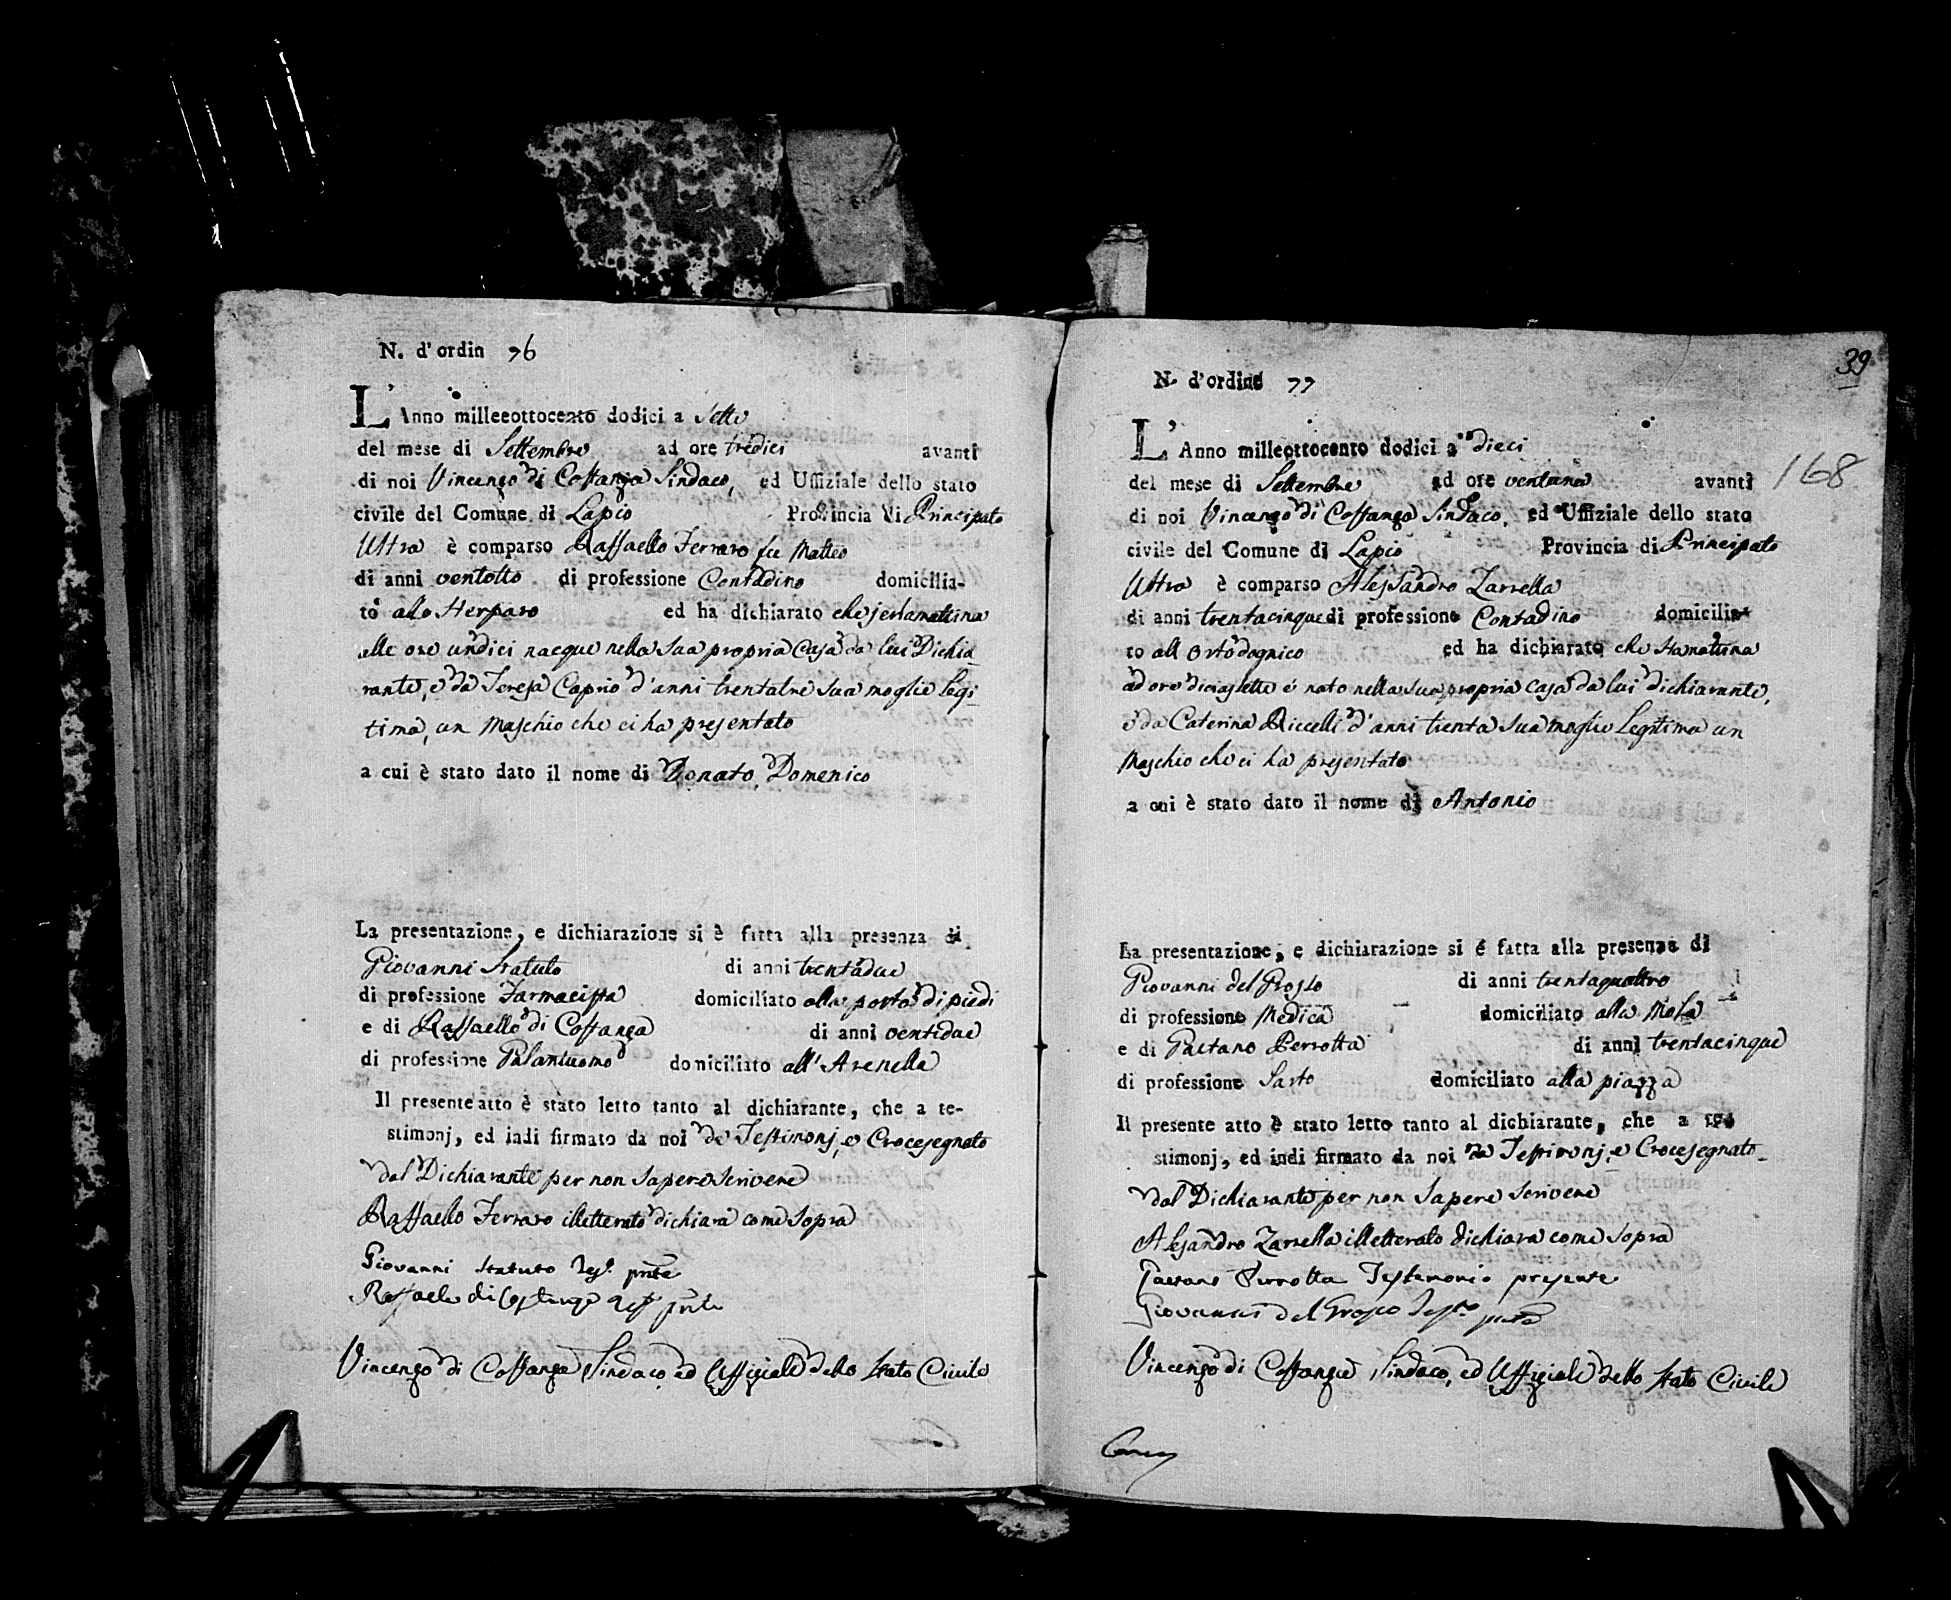 N. d'ordin 76
L'Anno milleeottocento dodici a Sette
del mese di Settembre ad ore tredici avanti
di noi Vincenzo di Costanza Sindaco, ed Uffiziale dello stato
civile del Comune di Lapio Provincia di Principato
Ultra è comparso Raffaello Ferraro fu Matteo
di anni ventotto di professione Contadino domicilia-
to allo ed ha dichiarato che jerlamattina
alle ore undici nacque nella sua propria Casa da lui Dichia_
rante, e da Teresa Caprio d'anni trentatre sua moglie legi_
tima, un Maschio che ci ha presentato
a cui è stato dato il nome di Donato, Domenico
La presentazione, e dichiarazione si è fatta alla presenza di
Giovanni Statuto di anni trentadue
di professione Farmacista domiciliato alla porta di piedi
e di Raffaello di Costanza di anni ventidue
di professione Galantuomo domiciliato all'Arenella
Il presente atto è stato letto tanto al dichiarante, che a te-
stimonj, ed indi firmato da noi da Testimonj, e Crocesegnato
dal Dichiarante per non sapere scrivere
Raffaello Ferraro illetterato dichiara come sopra
Giovanni Statuto
Raffaele di Costanza
Vincenzo di Costanza Sindaco, ed Uffiziale dello Stato Civile
39
168
N. d'ordine 77
L'Anno milleottocento dodici a dieci
del mese di Settembre ad ore ventuna avanti
di noi Vincenzo di Costanza Sindaco, ed Uffiziale dello stato
civile del Comune di Lapio Provincia di Principato
Ultra è comparso Alessandro Zarrella
di anni trentacinque di professione Contadino domicilia-
to all ed ha dichiarato che stamattina
ad ore diciassette é nato nella sua propria casa da lui dichiarante,
e da Caterina Riccelli d'anni trenta sua moglie Legitima un
Maschio che ci ha presentato
a cui è stato dato il nome di Antonio
La presentazione, e dichiarazione si é fatta alla presenza di
Giovanni del Grosso di anni trentaquattro
di professione Medico domiciliato alla
e di Gaetano Perrotta di anni trentacinque
di professione Sarto domiciliato alla piazza
Il presente atto è stato letto tanto al dichiarante, che a te-
stimonj, ed indi firmato da noi da Testimonj, e Crocesegnato_
dal Dichiarante per non sapere scrivere
Alesandro Zarrella illetterato dichiara come sopra
Gaetano Perrotta Testimonio presente
Giovanni del Grosso
Vincenzo di Costanza Sindaco, ed Uffiziale dello Stato Civile